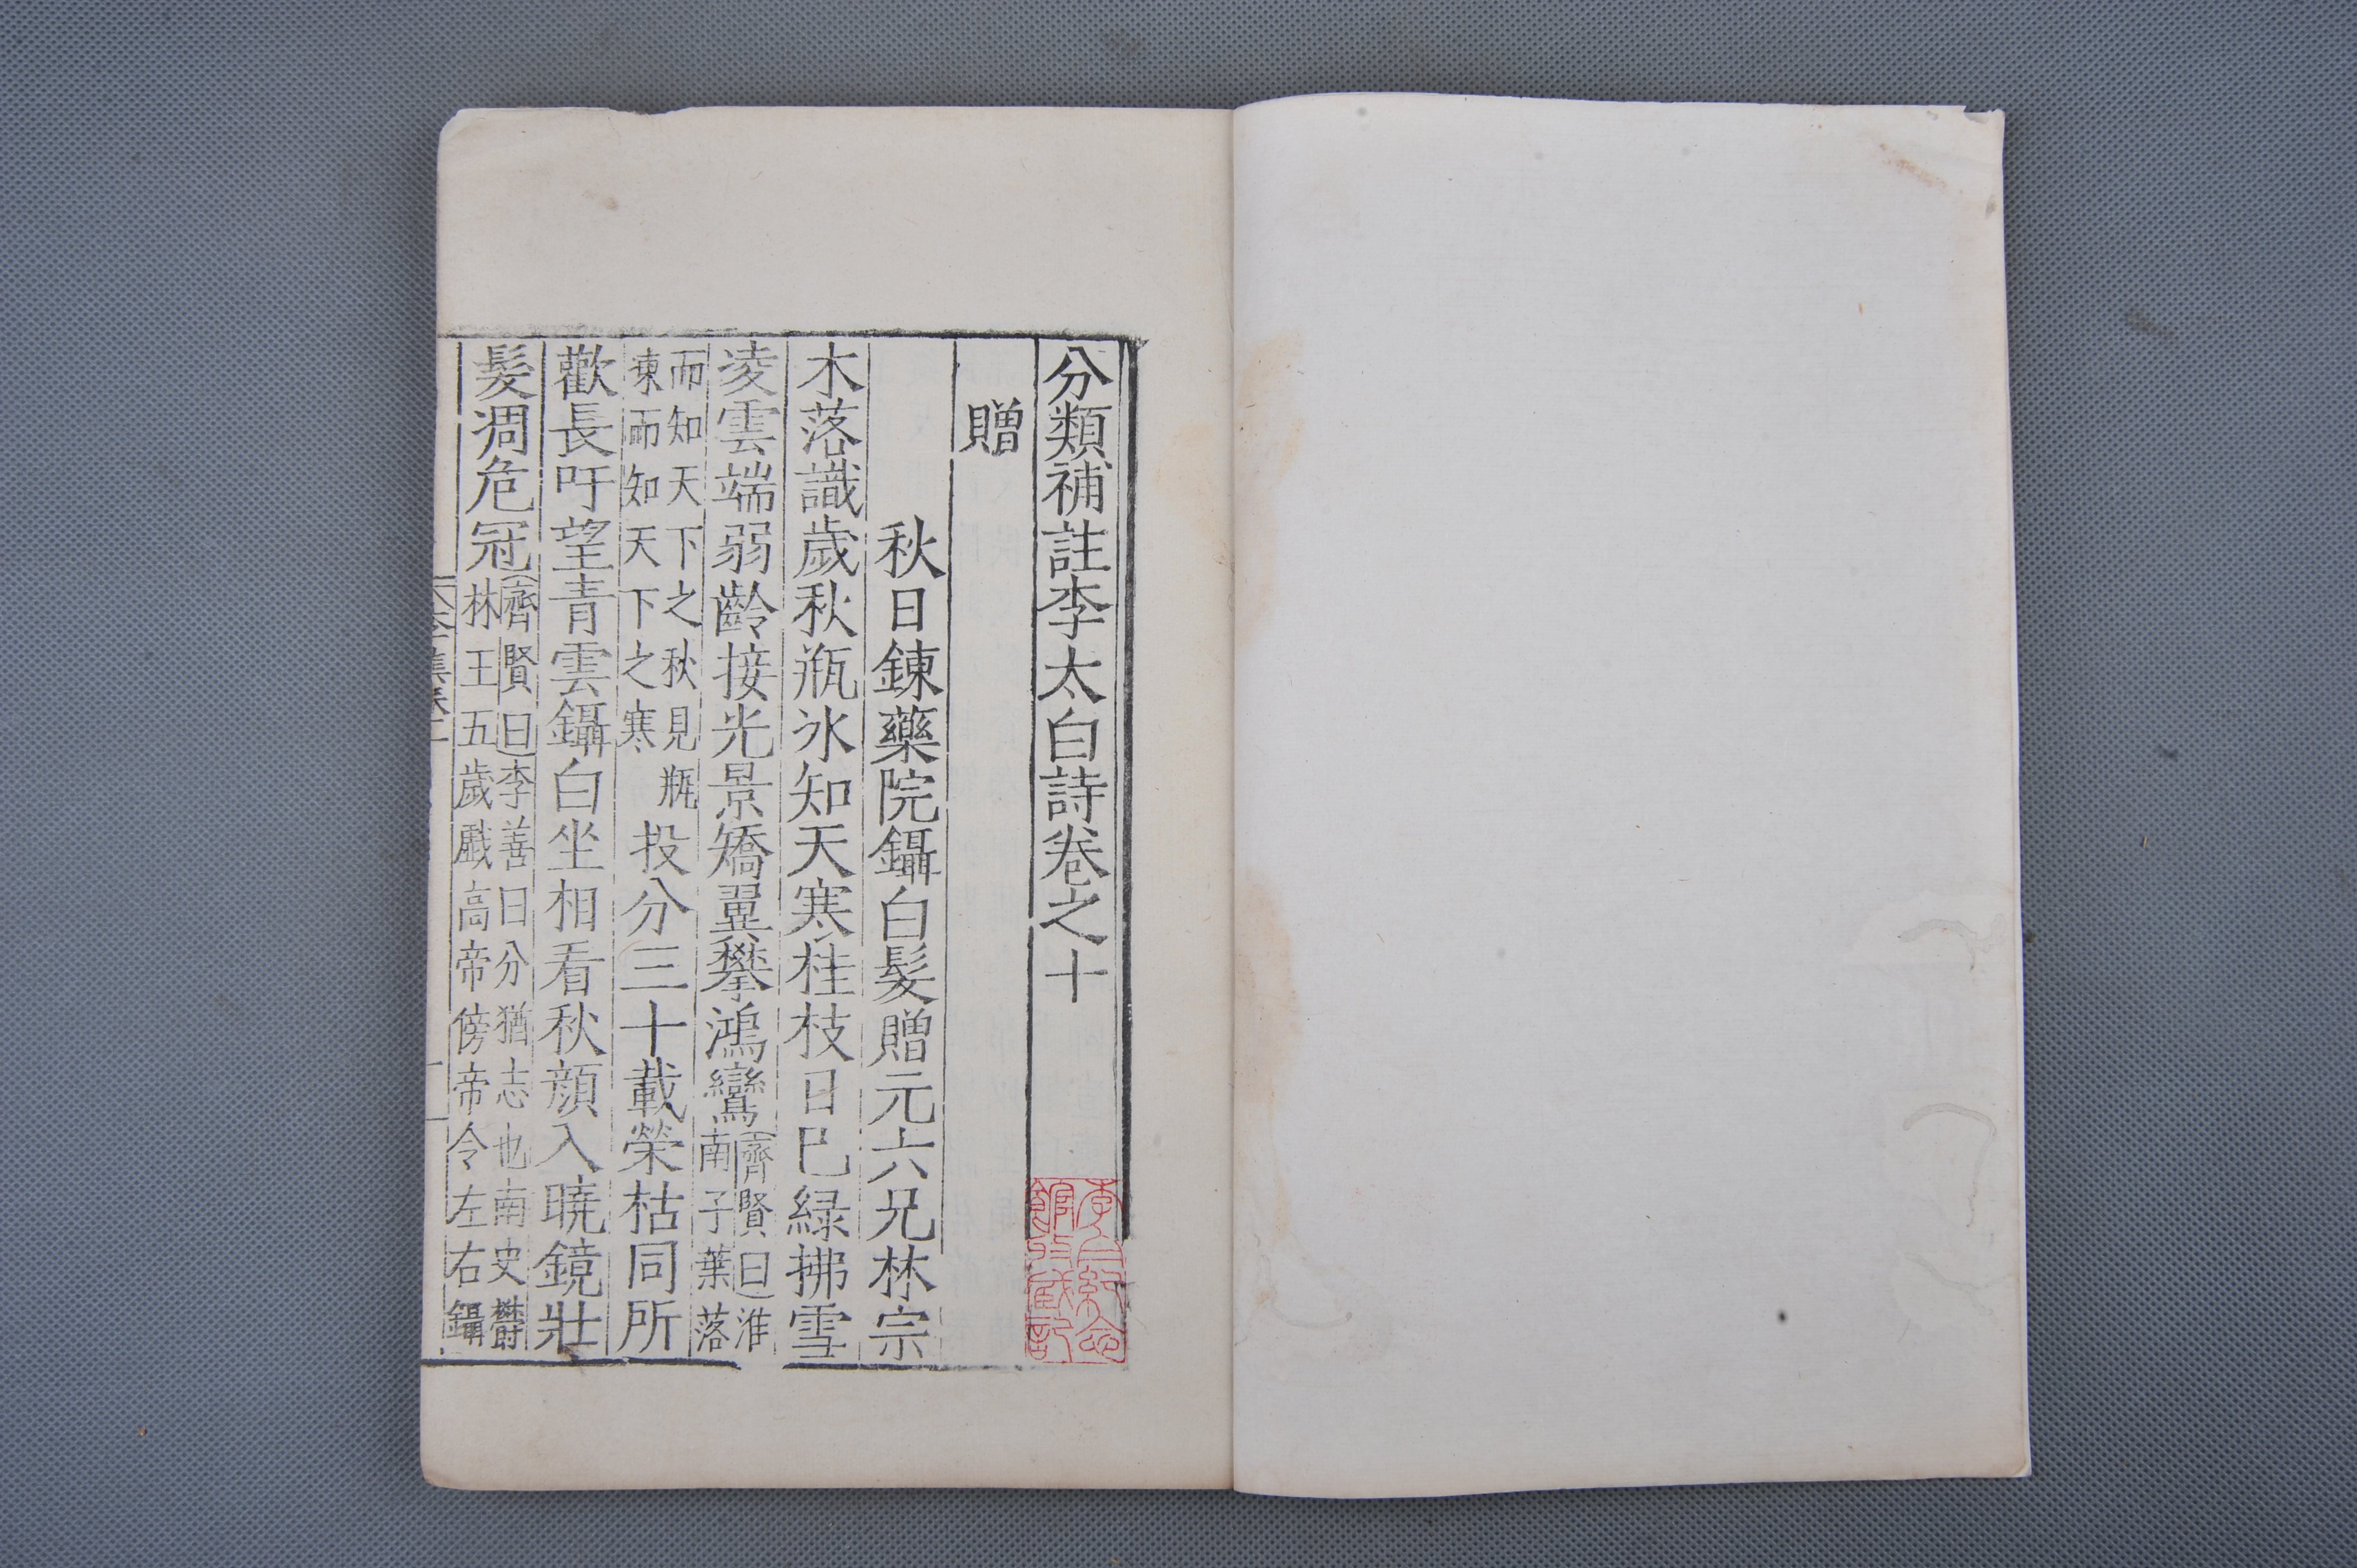 分類補註李太白詩卷之十
贈
秋日鍊藥院鑷白髮贈元六兄林宗
木落識歲秋瓶氷知天寒桂枝日已綠拂雪
凌雲端弱齡接光景矯翼攀鴻鸞齊賢曰淮南子葉落
而知天下之秋見瓶凍而知天下之寒投分三十載榮枯同所
歡長吁望青雲鑷白坐相看秋顔入曉鏡壯
髮凋危冠齊賢曰李善曰分猶志也南史鬱林王五歲戲高帝傍帝令左右鑷
李白紀念